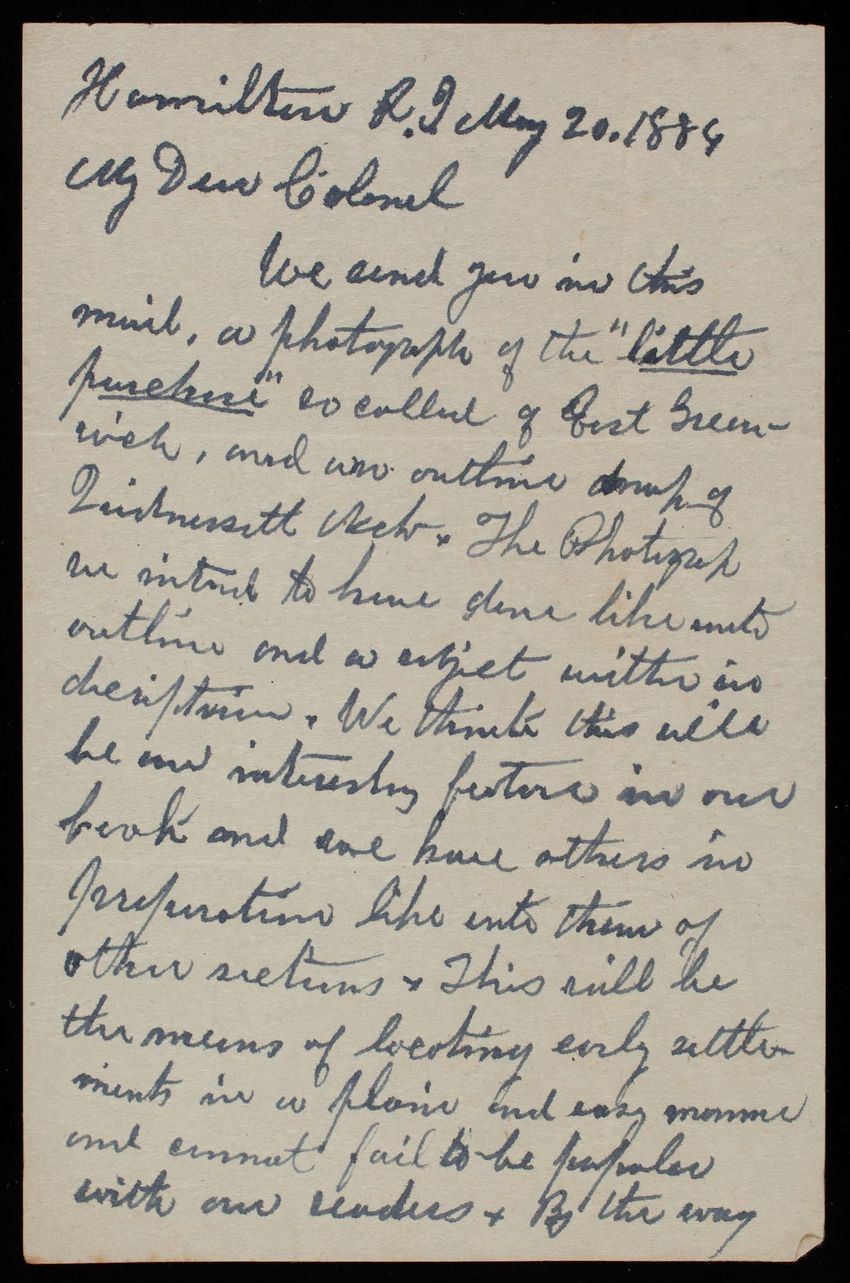 Hamilton R.I May 20. 1886
My Dear Colonel
We send you in this
mail, a photograph of the "little
purchase" so called of East Green-
wich, and an outline map of
Quidnessett Neck. The Photograph
we intend to have done like unto
outline and a subject written in
description. We think this will
be an interesting feature in our
book and we have others in
preparation like unto them of
other sections. This will be
the means of locating early settle-
ments in a plain and easy manner
and cannot fail to be popular
with our readers. By the way